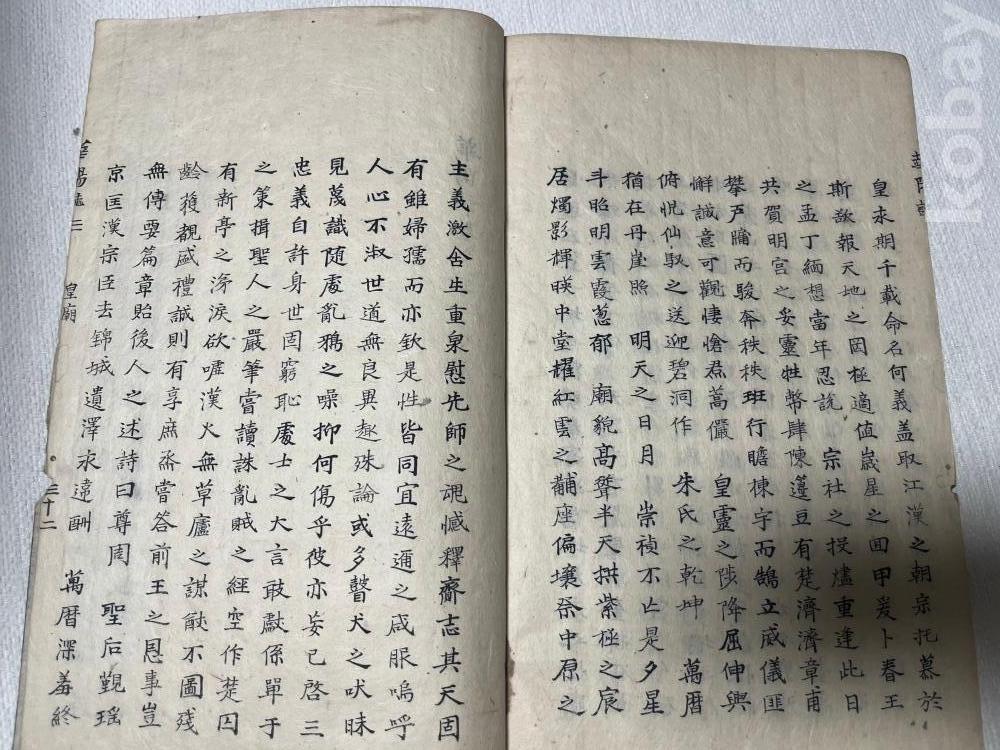 華陽誌
皇永期千載命名何義盖取江漢之朝宗托慕於
斯敢報天地之罔極適值歲星之囬甲爰卜春王
之孟丁緬想當年忍說 宗社之投燼重逢此日
共賀明宮之妥靈牲幣肆陳籩豆有楚濟濟章甫
攀戶牖而駿奔秩秩班行瞻棟宇而鵠立威儀匪
懈誠意可觀悽愴焄蒿儼 皇靈之陟降屈伸興
俯怳仙馭之送迎碧洞作 朱氏之乾坤 萬曆
猶在丹崖照 明天之日月 崇禎不亡是夕星
斗昭明雲霞葱郁 廟貌髙聳半天拱紫極之宸
居燭影輝暎中堂耀紅雲之黼座偏壤祭中原之
主義激舍生重泉慰先師之魂憾釋齎志其天固
有雖婦孺而亦欽是性皆同宜遠邇之咸服嗚呼
人心不淑世道無良異趣殊論或多瞽犬之吠昧
見蔑識随處亂鴉之噪抑何傷乎彼亦妄已啓三
忠義自許身世固窮恥處士之大言敢獻係單于
之策揖聖人之嚴筆嘗讀誅亂賊之經空作楚囚
有新亭之涕淚欲嘘漢火無草廬之謀猷不圖殘
齡獲覩盛禮誠則有享庶烝嘗答前王之恩事豈
無傳要篇章貽後人之述詩曰尊周 聖后覲瑤
京匡漢宗臣去錦城遺澤求遠酬 萬曆深羞終
華陽誌三 皇廟 三十二
kobay